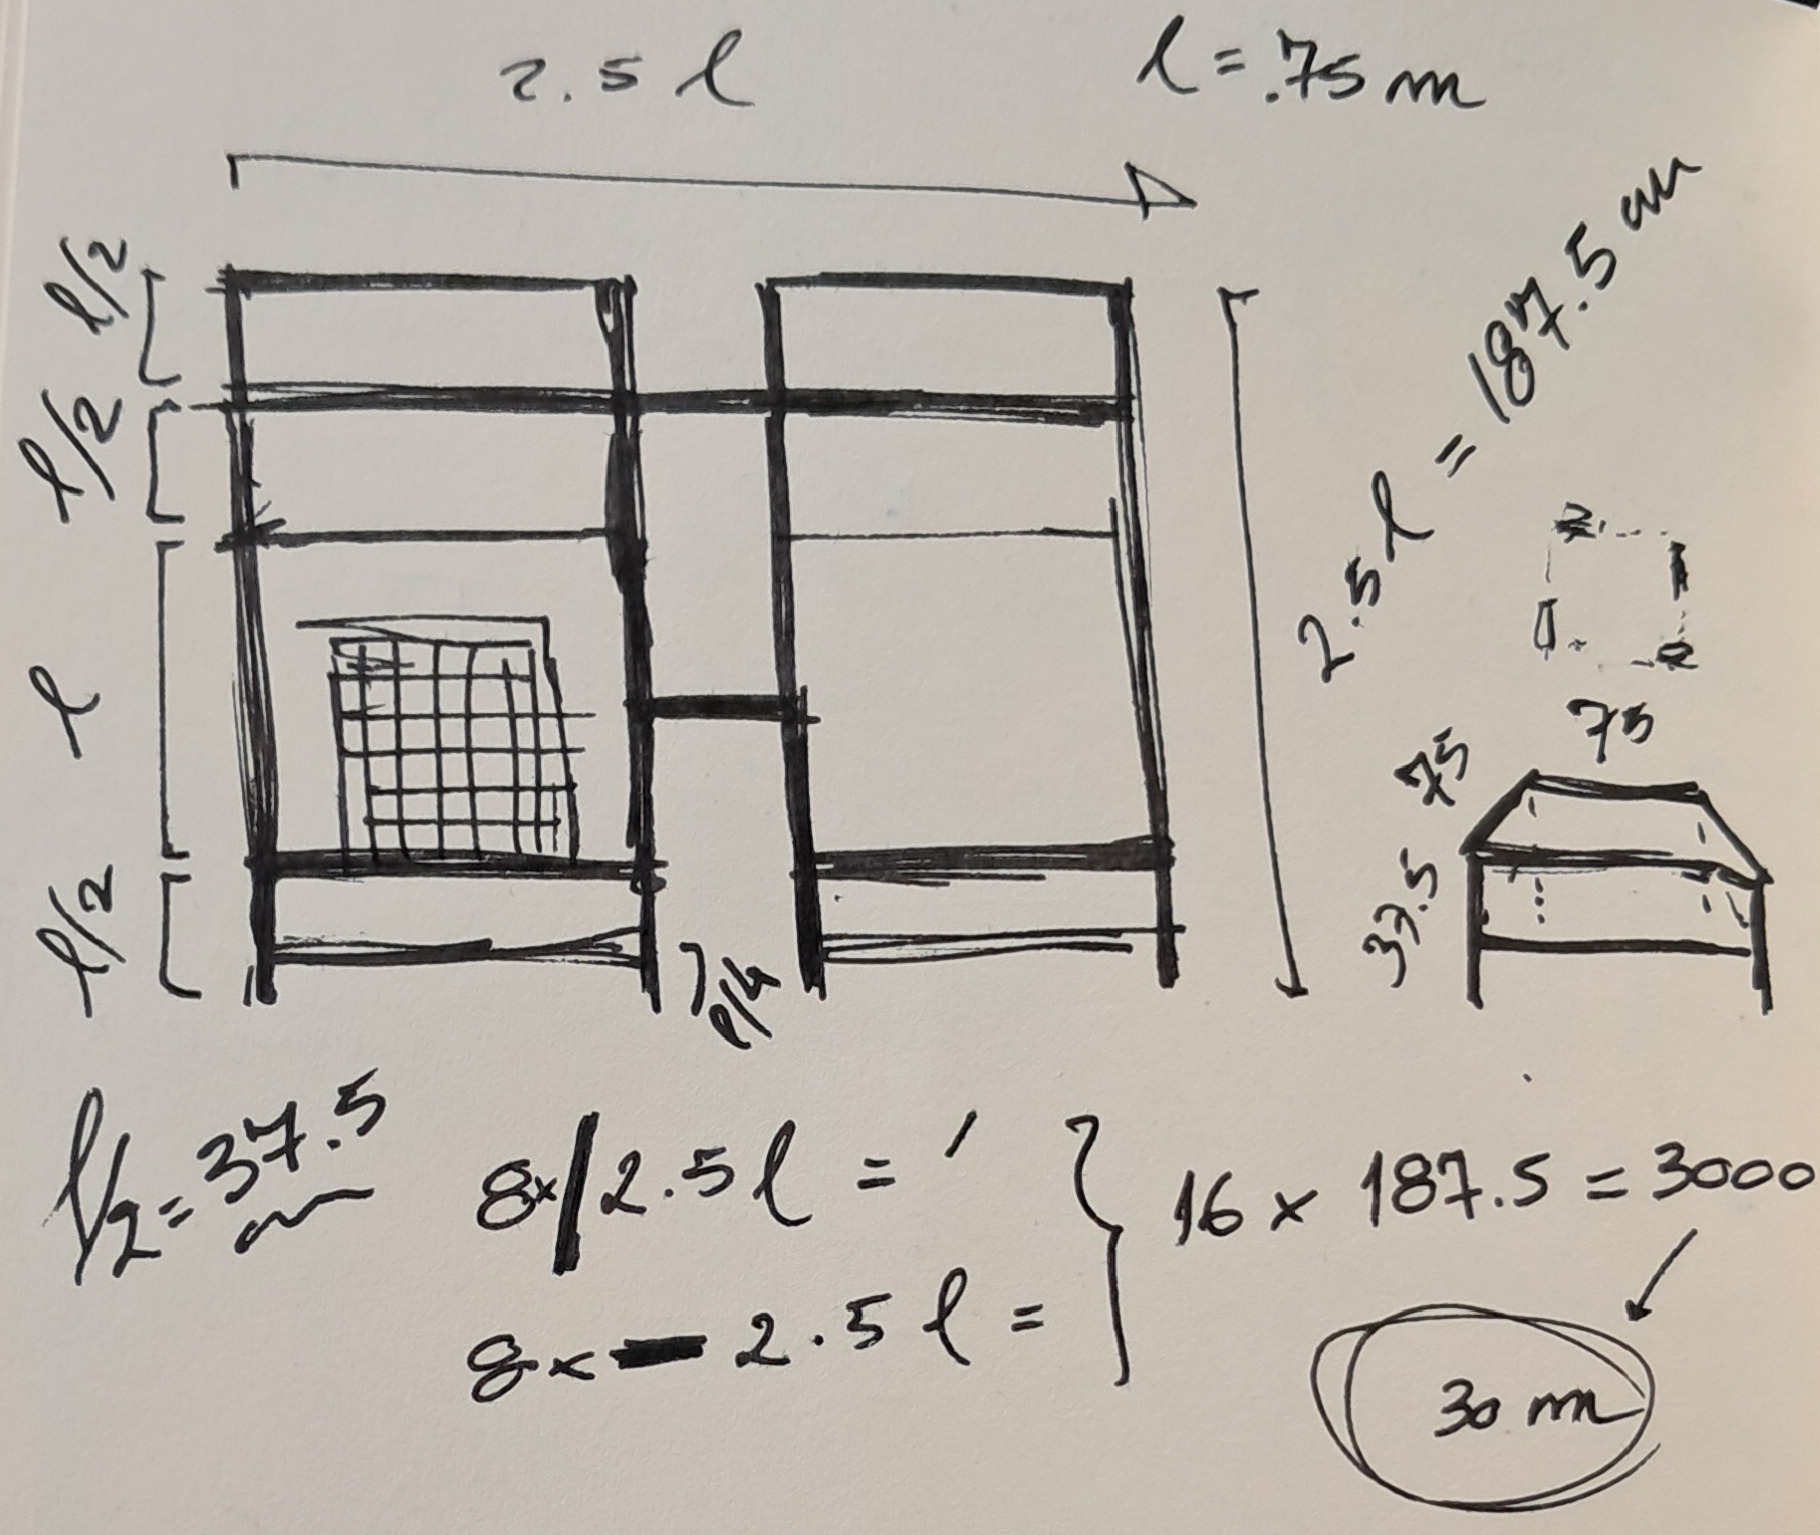 2.5 l
l = .75 m
l/2
l/2
l
l/2
2.5 l = 187.5 cm
75
75
37.5
l/4
l/2 = 37.5
8x | 2.5 l =
8x — 2.5 l =
16 x 187.5 = 3000
30 m